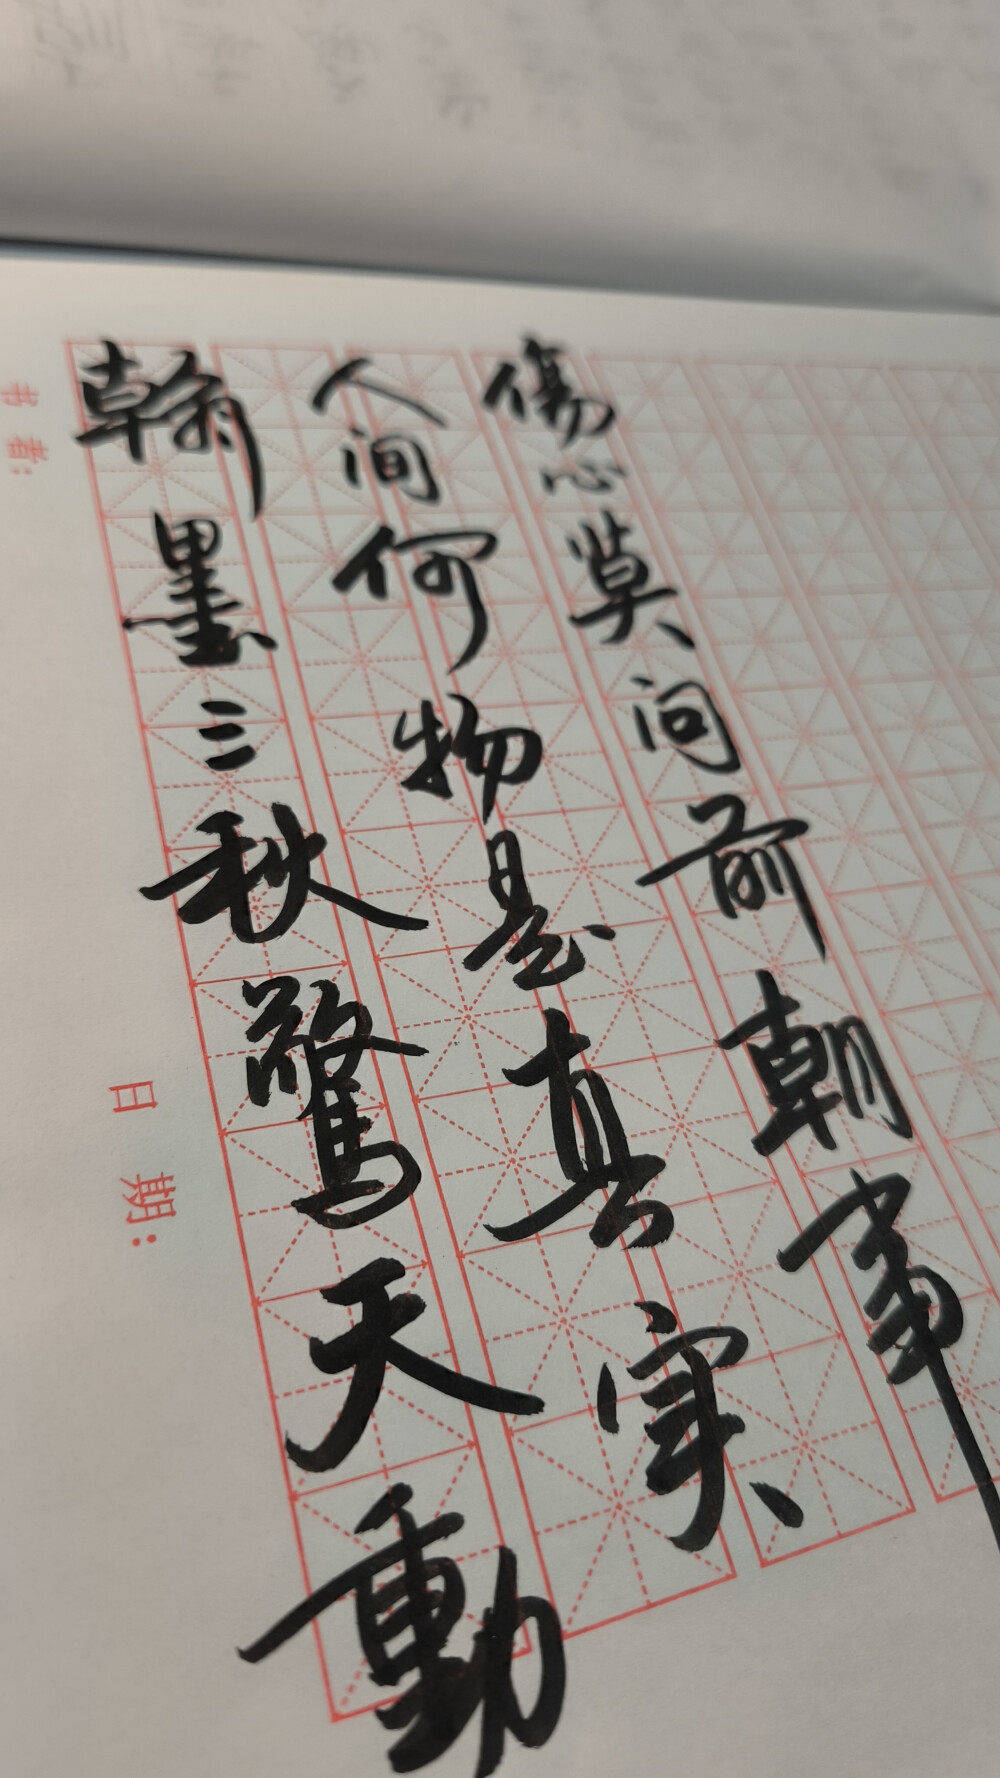 傷心莫问前朝事
人间何物是真实
翰墨三秋驚天動
书者:
日期: